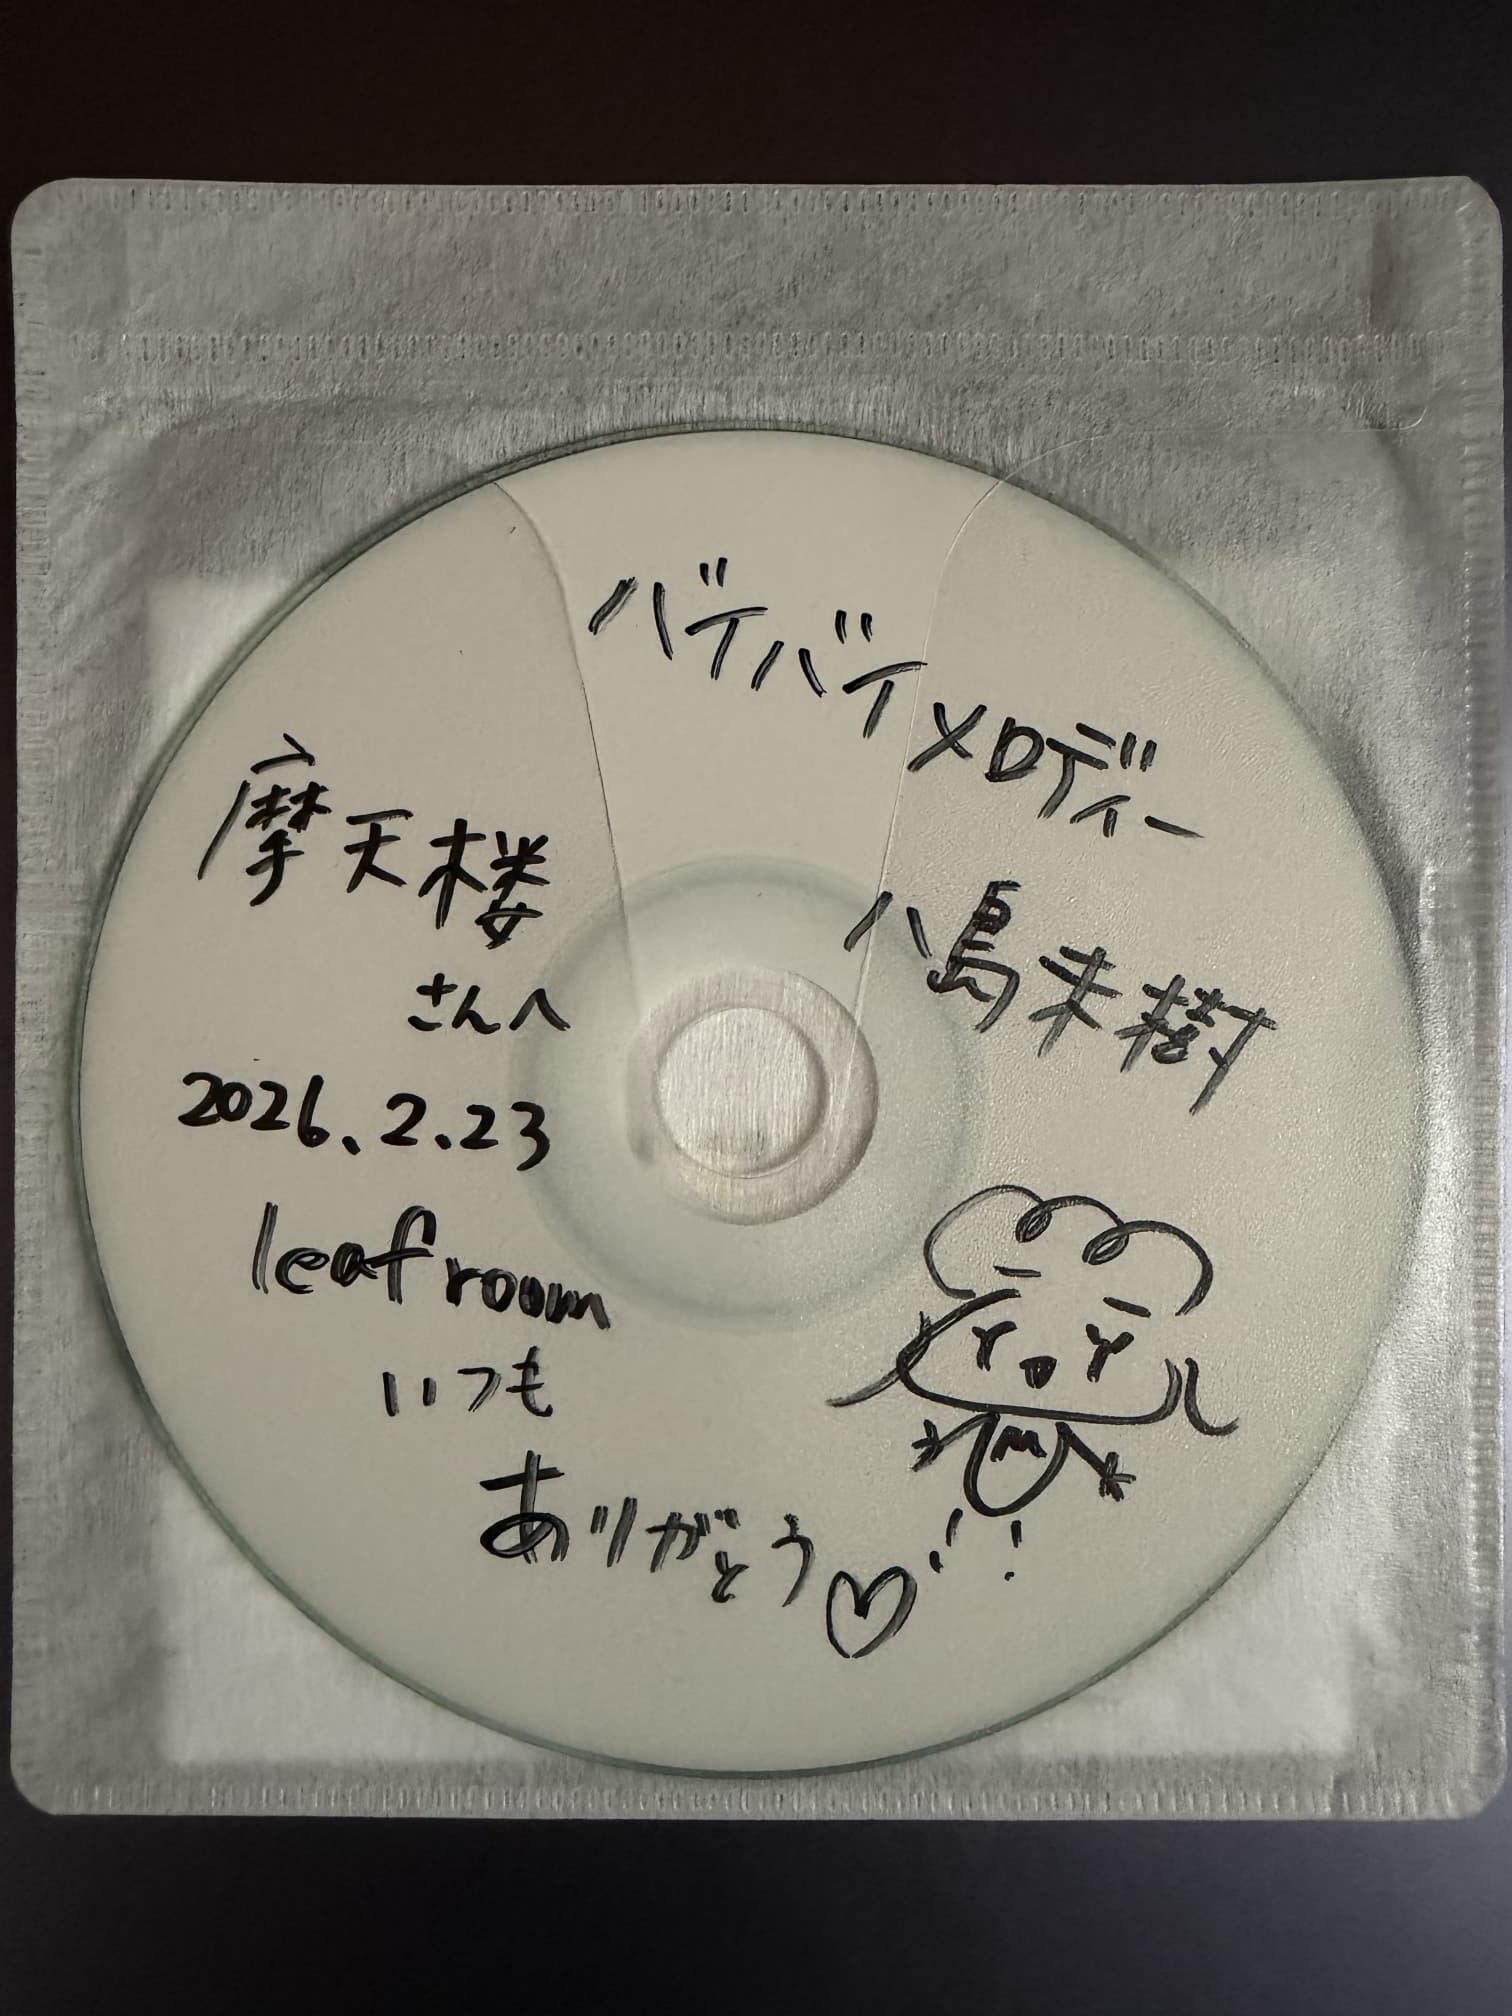 バイバイメロディー
八島未樹
摩天楼
さんへ
2026.2.23
leaf room
いつも
ありがとう♡